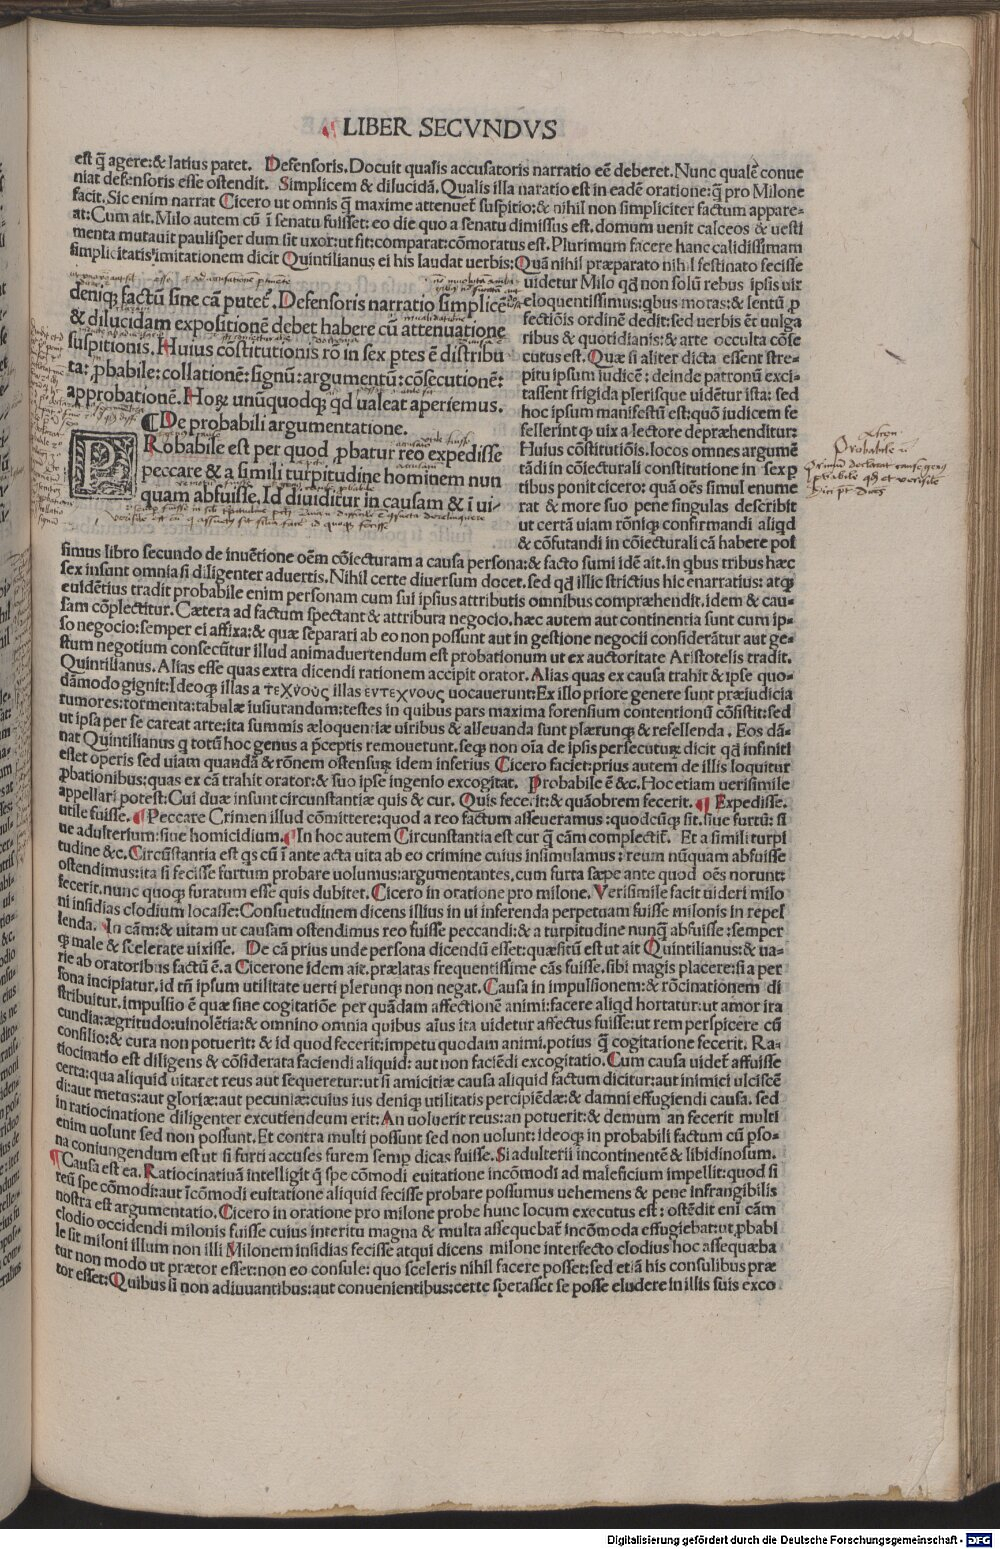 ¶ LIBER SECVNDVS
est q̃ agere:& latius patet. Defensoris. Docuit qualis accusatoris narratio eẽ deberet. Nunc qualẽ conue
niat defensoris esse ostendit. Simplicem & dilucidã. Qualis illa naratio est in eadẽ oratione:q̃ pro Milone
facit. Sic enim narrat Cicero ut omnis q̃ maxime attenuet̃ suspitio:& nihil non simpliciter factum appare-
at: Cum ait. Milo autem cũ ĩ senatu fuisset: eo die quo a senatu dimissus est. domum uenit calceos & uesti
menta mutauit paulisper dum sit uxor: ut fit: comparat: cõmoratus est. Plurimum facere hanc calidissimam
simplicitatis imitationem dicit Quintilianus ei his laudat uerbis: Quã nihil præparato nihil festinato fecisse
deniqȝ factũ sine cã putet̃. Defensoris narratio simplicẽ
& dilucidam expositionẽ debet habere cũ attenuatione
suspitionis. Huius cõstitutionis rõ in sex ꝑtes ẽ distribu
ta: ꝓbabile: collationẽ: signũ: argumentũ: cõsecutionẽ:
approbationẽ. Hoꝝ unũquodqȝ qđ ualeat aperiemus.
¶ De probabili argumentatione.
PRobabile est per quod ꝓbatur reo expedisse
peccare & a simili turpitudine hominem nun
quam abfuisse. Id diuiditur in causam & ĩ ui-
uidetur Milo qđ non solũ rebus ipsis uir
eloquentissimus: qbus moras: & lentũ ꝓ
fectiõis ordinẽ dedit: sed uerbis ẽt uulga
ribus & quotidianis: & arte occulta cõse
cutus est. Quæ si aliter dicta essent stre-
pitu ipsum iudicẽ: deinde patronũ exci-
tassent frigida plerisque uidẽtur ista: sed
hoc ipsum manifestũ est: quõ iudicem fe
fellerint qȝ uix a lectore depræhenditur:
Huius cõstitutiõis. locos omnes argumẽ
tãdi in cõiecturali constitutione in sex ꝑ
tibus ponit cicero: quã oẽs simul enume
rat & more suo pene singulas describit
ut certã uiam rõniqȝ confirmandi aliqd
& cõfutandi in cõiecturali cã habere pos
simus libro secundo de inuẽtione oẽm cõiecturam a causa persona: & facto sumi idẽ ait. in qbus tribus hæc
sex insunt omnia si diligenter aduertis. Nihil certe diuersum docet. sed qđ illic strictius hic enarratius: atqȝ
euidẽtius tradit probabile enim personam cum sui ipsius attributis omnibus compræhendit. idem & cau-
sam cõplectitur. Cætera ad factum spectant & attributa negocio. hæc autem aut continentia sunt cum ip-
so negocio: semper ei affixa: & quæ separari ab eo non possunt aut in gestione negocii considerãtur aut ge-
stum negotium consecũtur illud animaduertendum est probationum ut ex auctoritate Aristotelis tradit.
Quintilianus. Alias esse quas extra dicendi rationem accipit orator. Alias quas ex causa trahit & ipse quo-
dãmodo gignit: Ideoqȝ illas a τεχνους illas εντεχνους uocauerunt: Ex illo priore genere sunt præiudicia
rumores: tormenta: tabulæ iusiurandum: testes in quibus pars maxima forensium contentionũ cõsistit: sed
ut ipsa per se careat arte: ita summis æloquentiæ uiribus & alleuanda sunt plærunqȝ & refellenda. Eos dã-
nat Quintilianus q̃ totũ hoc genus a p̃ceptis remouerunt. seqȝ non oĩa de ipsis persecutuȝ dicit qđ infiniti
esset operis sed uiam quandã & rõnem ostensuȝ idem inferius Cicero faciet: prius autem de illis loquitur
ꝓbationibus: quas ex cã trahit orator: & suo ipse ingenio excogitat. Probabile ẽ &c. Hoc etiam uerisimile
appellari potest: Cui duæ insunt circunstantiæ quis & cur. Quis fecerit: & quãobrem fecerit. ¶ Expedisse.
utile fuisse. ¶ Peccare Crimen illud cõmittere: quod a reo factum asseueramus: quodcũqȝ sit. siue furtũ: si
ue adulterium: siue homicidium. ¶ In hoc autem Circunstantia est cur q̃ cãm complectit̃. Et a simili turpi
tudine &c. Circũstantia est qs cũ ĩ ante acta uita ab eo crimine cuius insimulamus: reum nũquam abfuisse
ostendimus: ita si fecisse furtum probare uolumus: argumentantes, cum furta sæpe ante quod oẽs norunt:
fecerit. nunc quoqȝ furatum esse quis dubitet. Cicero in oratione pro milone. Verisimile facit uideri milo
ni insidias clodium locasse: Consuetudinem dicens illius in ui inferenda perpetuam fuisse milonis in repel
lenda. In cãm: & uitam ut causam ostendimus reo fuisse peccandi: & a turpitudine nunq̃ abfuisse: semper
qȝ male & scelerate uixisse. De cã prius unde persona dicendũ esset: quæsitũ est ut ait Quintilianus: & ua-
rie ab oratoribus factũ ẽ. a Cicerone idem ait. prælatas frequentissime cãs fuisse. sibi magis placere: si a per
sona incipiatur. id tñ ipsum utilitate uerti plerunqȝ non negat. Causa in impulsionem: & rõcinationem di
stribuitur. impulsio ẽ quæ sine cogitatiõe per quãdam affectionẽ animi: facere aliqd hortatur: ut amor ira
cundia: ægritudo: uinolẽtia: & omnino omnia quibus aĩus ita uidetur affectus fuisse: ut rem perspicere cũ
consilio: & cura non potuerit: & id quod fecerit: impetu quodam animi. potius q̃ cogitatione fecerit. Ra-
tiocinatio est diligens & cõsiderata faciendi aliquid: aut non faciẽdi excogitatio. Cum causa uidet̃ affuisse
certa: qua aliquid uitaret reus aut sequeretur: ut si amicitiæ causa aliquid factum dicitur: aut inimici ulciscẽ
di: aut metus: aut gloriæ: aut pecuniæ: cuius ius deniqȝ utilitatis percipiẽdæ: & damni effugiendi causa. sed
in ratiocinatione diligenter excutiendeum erit: An uoluerit reus: an potuerit: & demum an fecerit multi
enim uolunt sed non possunt. Et contra multi possunt sed non uolunt: ideoqȝ in probabili factum cũ pso-
na coniungendum est ut si furti accuses furem semp dicas fuisse. Si adulterii incontinentẽ & libidinosum.
¶ Causa est ea. Ratiocinatiuã intelligit q̃ spe cõmodi euitatione incõmodi ad maleficium impellit: quod si
reũ spe cõmodi: aut ĩcõmodi euitatione aliquid fecisse probare possumus uehemens & pene infrangibilis
nostra est argumentatio. Cicero in oratione pro milone probe hunc locum executus est: ostẽdit eni cãm
clodio occidendi milonis fuisse cuius interitu magna & multa assequebat̃ incõmoda effugiebat: ut ꝓbabi
le sit miloni illum non illi Milonem insidias fecisse atqui dicens milone interfecto clodius hoc assequæba
tur non modo ut prætor esset: non eo consule: quo sceleris nihil facere posset: sed etiã his consulibus præ
tor esset: Quibus si non adiuuantibus: aut conuenientibus: certe sperasset se posse eludere in illis suis exco
Probabile
Digitalisierung gefördert durch die Deutsche Forschungsgemeinschaft - DFG